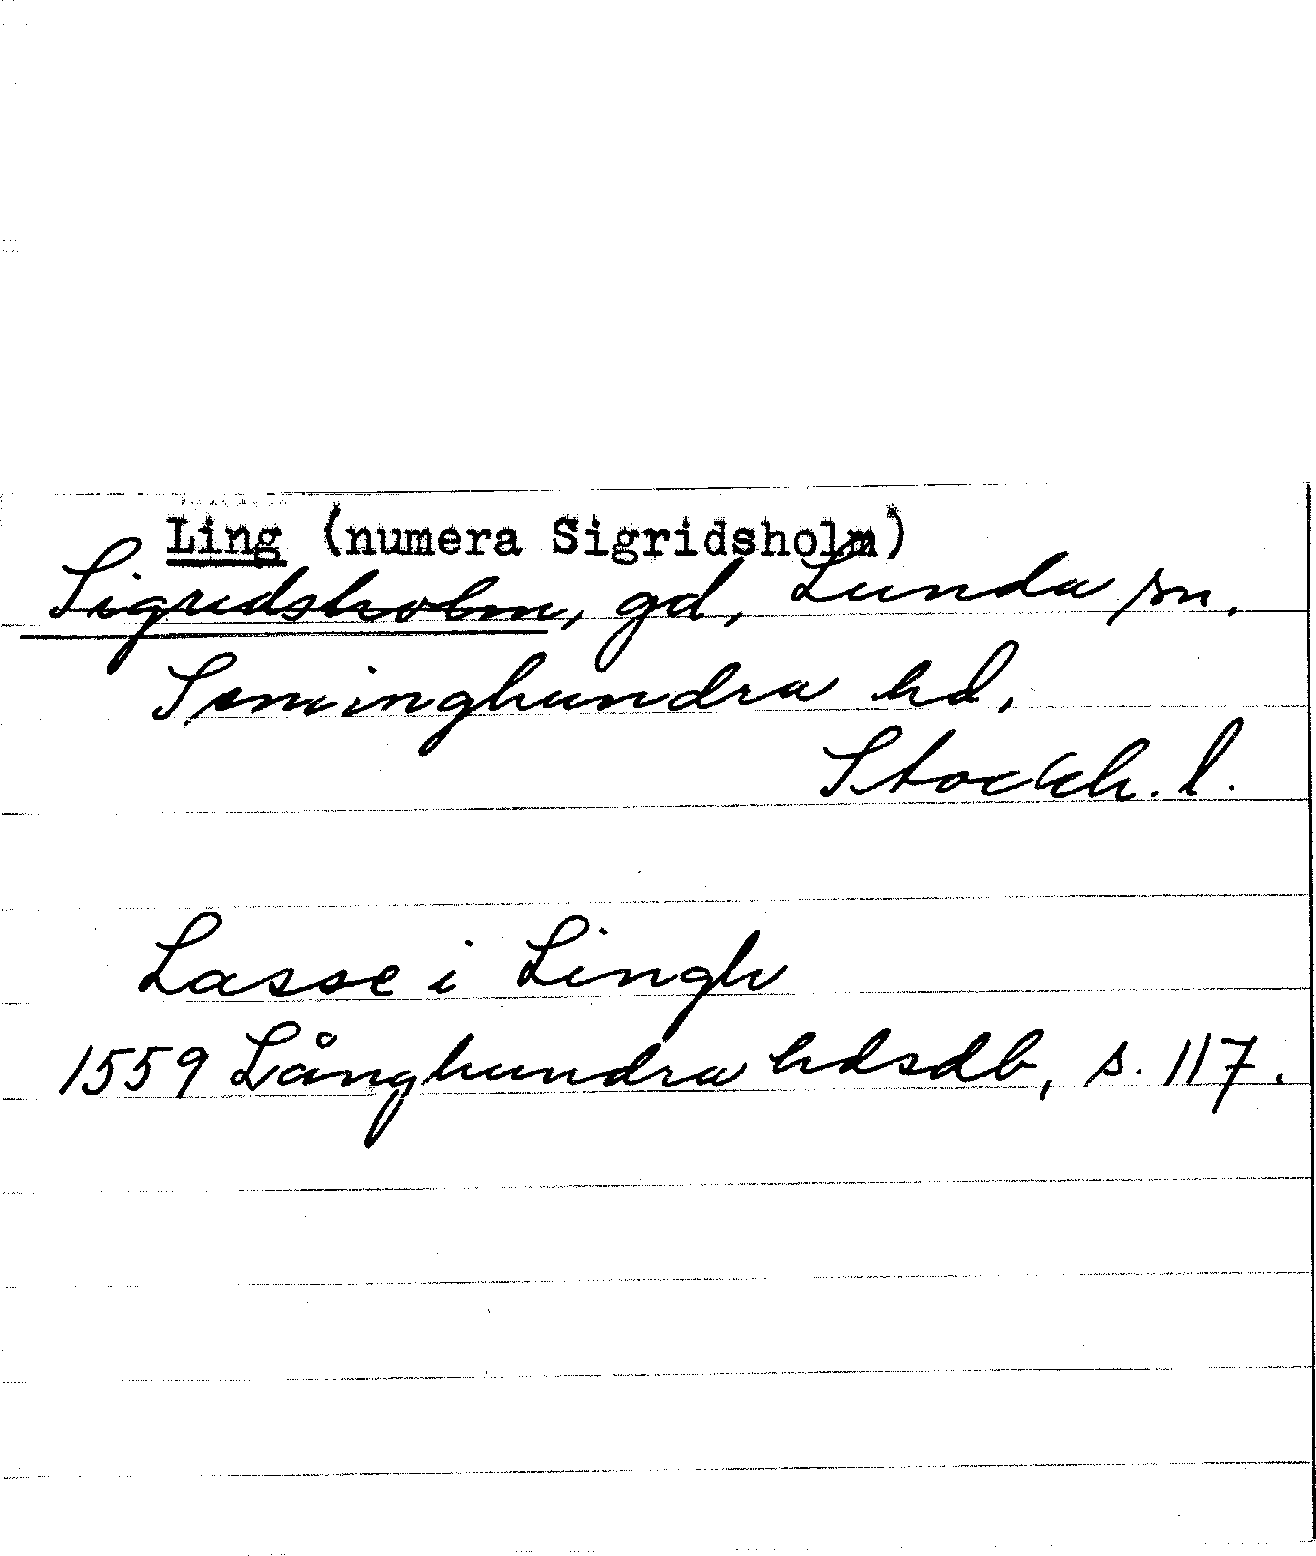 Ling (numera Sigridsholm)
Sigridsholm, gd, Lunda sn.
Seminghundra hd.
Stockh. l.
Lasse i Lingh
1559 Långhundra hdsdb, s. 117.